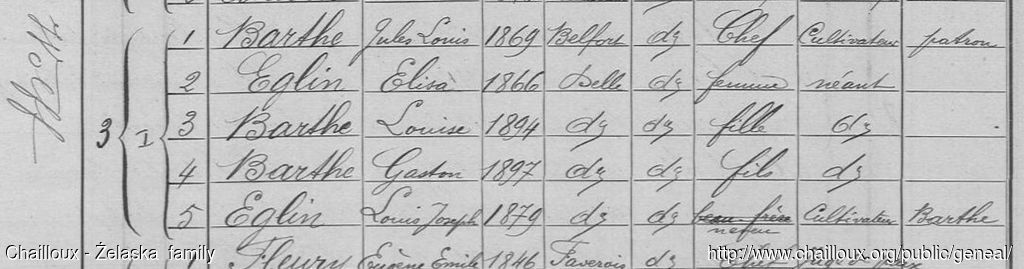 3 I 1 Barthe Jules Louis 1869 Belfort dº Chef Cultivateur patron
2 Eglin Elisa 1866 Delle dº femme néant
3 Barthe Louise 1894 dº dº fille dº
4 Barthe Gaston 1897 dº dº fils dº
5 Eglin Louis Joseph 1879 dº dº beau-frère Cultivateur Barthe
neveu
1 Fleury Eugène Emile 1846 Faverois dº Chef
Chailloux - Żelaska family
http://www.chailloux.org/public/geneal